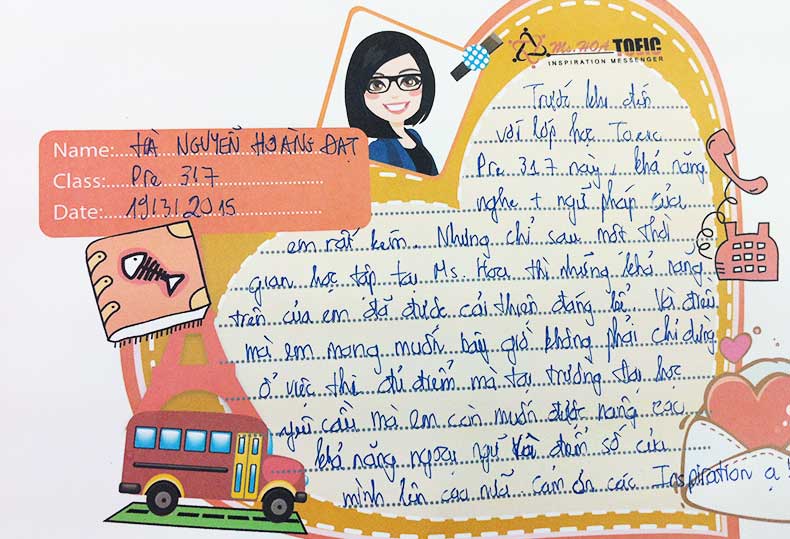 Ms. HOA TOEIC
INSPIRATION MESSENGER
Name: HÀ NGUYỄN HOÀNG ĐẠT
Class: Pre 317
Date: 19/3/2015
Trước khi đến
với lớp học Toeic
Pre 317 này, khả năng
nghe + ngữ pháp của
em rất kém. Nhưng chỉ sau một thời
gian học tập tại Ms. Hoa thì những khả năng
trên của em đã được cải thiện đáng kể. Và điều
mà em mong muốn bây giờ không phải chỉ dừng
ở việc thi đủ điểm mà tại trường đại học
yêu cầu mà em còn muốn được nâng cao
khả năng ngoại ngữ và điểm số của
mình lên cao nữa cảm ơn các Inspiration ạ!